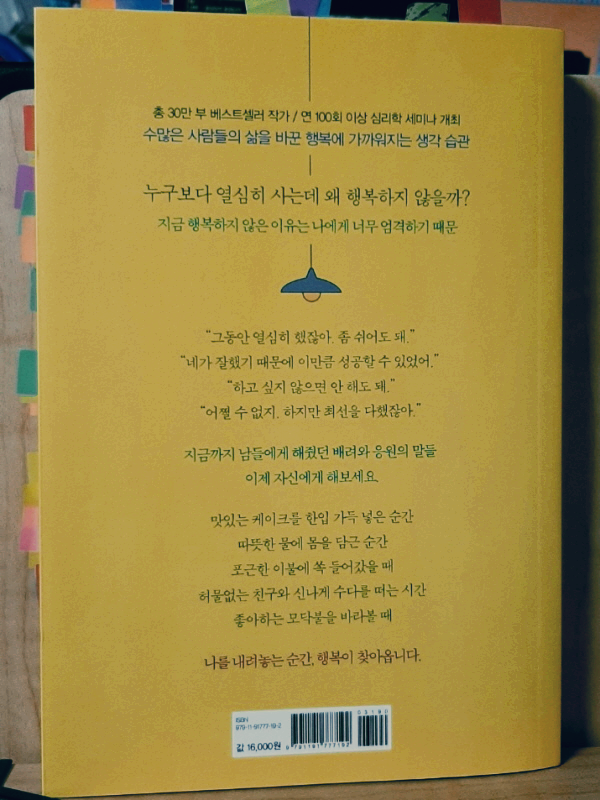 총 30만 부 베스트셀러 작가 / 연 100회 이상 심리학 세미나 개최
수많은 사람들의 삶을 바꾼 행복에 가까워지는 생각 습관
누구보다 열심히 사는데 왜 행복하지 않을까?
지금 행복하지 않은 이유는 나에게 너무 엄격하기 때문
“그동안 열심히 했잖아. 좀 쉬어도 돼.”
“네가 잘했기 때문에 이만큼 성공할 수 있었어.”
“하고 싶지 않으면 안 해도 돼.”
“어쩔 수 없지. 하지만 최선을 다했잖아.”
지금까지 남들에게 해줬던 배려와 응원의 말들
이제 자신에게 해보세요.
맛있는 케이크를 한입 가득 넣은 순간
따뜻한 물에 몸을 담근 순간
포근한 이불에 쏙 들어갔을 때
허물없는 친구와 신나게 수다를 떠는 시간
좋아하는 모닥불을 바라볼 때
나를 내려놓는 순간, 행복이 찾아옵니다.
ISBN
979-11-91777-19-2
값 16,000원
03190
9 791191 777192